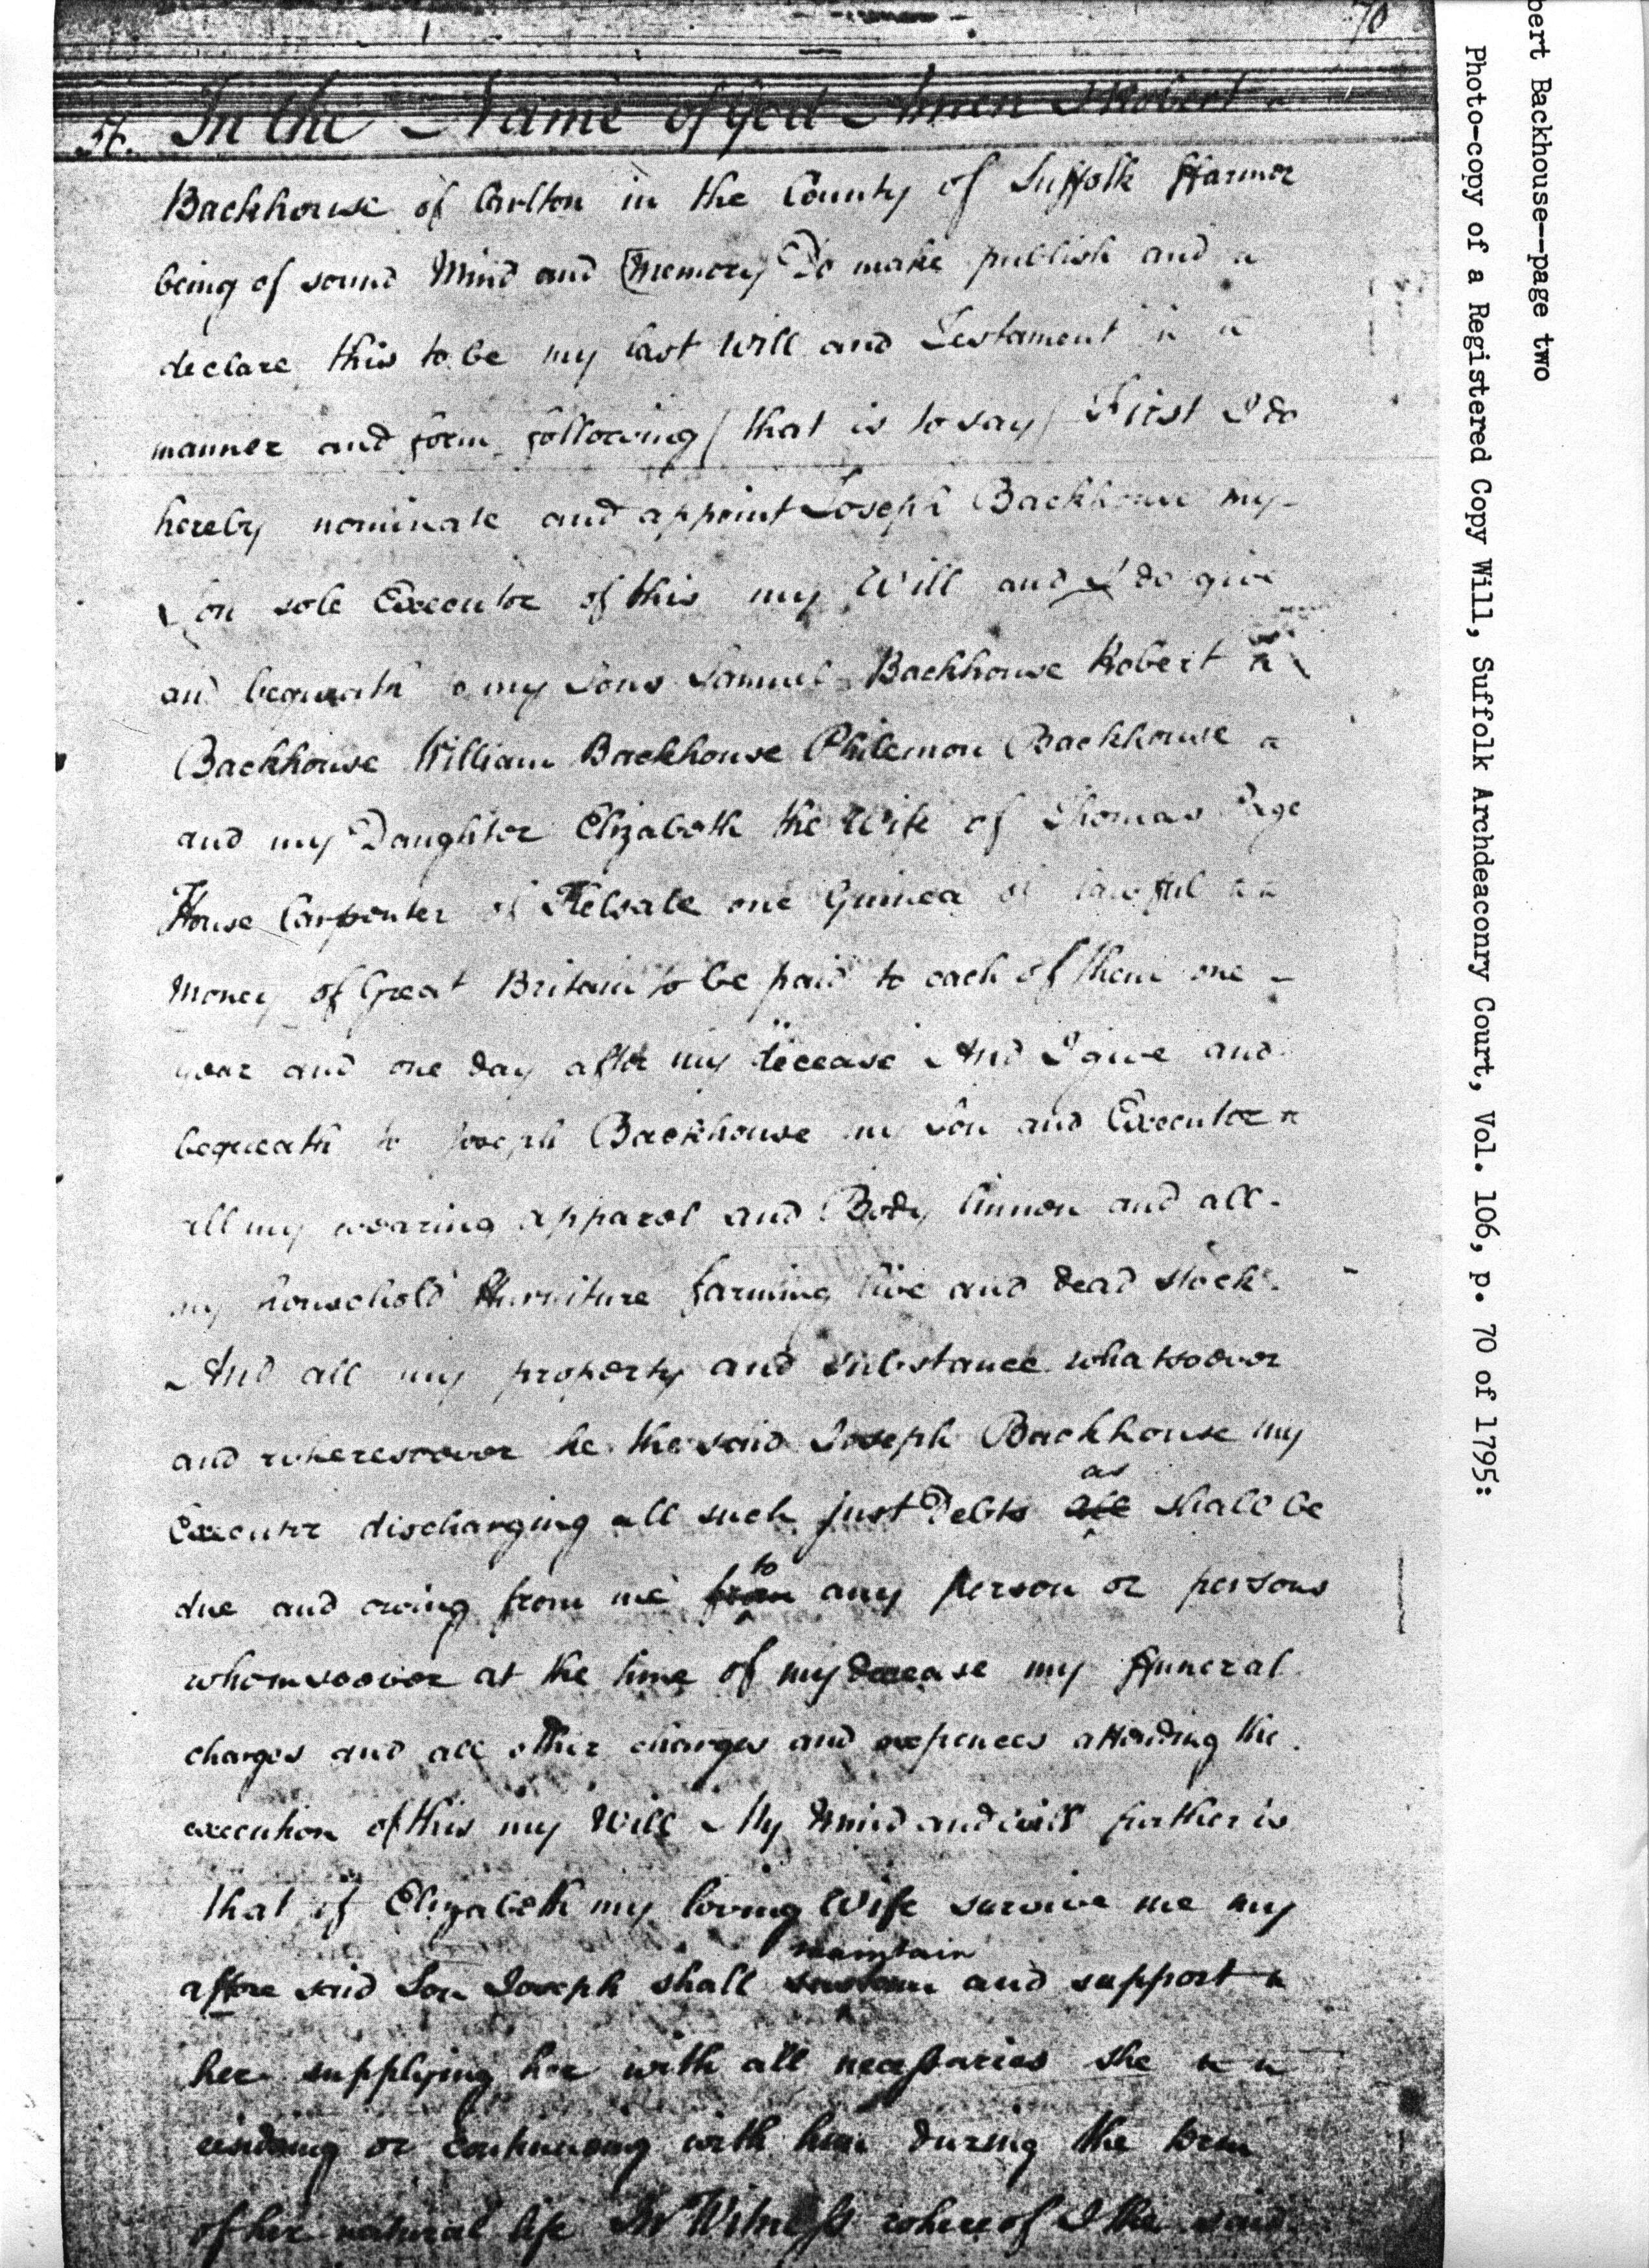 70
In the Name of God Amen I Robert
Backhouse of Carlton in the County of Suffolk ffarmer
being of sound Mind and Memory Do make publish and
declare this to be my last Will and Testament in
manner and form following (that is to say) First I do
hereby nominate and appoint Joseph Backhouse my
Son sole Executor of this my Will and I do give
and bequeath to my Sons Samuel Backhouse Robert
Backhouse William Backhouse Philemon Backhouse
and my Daughter Elizabeth the Wife of Thomas Page
House Carpenter of Kelsale one Guinea of lawful
Money of Great Britain to be paid to each of them one
year and one day after my decease And I give and
bequeath to Joseph Backhouse my Son and Executor
all my wearing apparel and Body linnen and all
my household ffurniture farming live and dead stock
And all my property and substance whatsoever
and wheresoever he the said Joseph Backhouse my
as
Executor discharging all such just Debts all shall be
to
due and owing from me from any person or persons
whomsoever at the time of my decease my ffuneral
charges and all other charges and expences attending the
execution of this my Will My Mind and will further is
that if Elizabeth my loving Wife survive me my
maintain
affore said Son Joseph shall and support
her supplying her with all necessaries she
or continueing with him during the term
of her natural life In Witness whereof I the said
bert Backhouse--page two
Photo-copy of a Registered Copy Will, Suffolk Archdeaconry Court, Vol. 106, p. 70 of 1795: